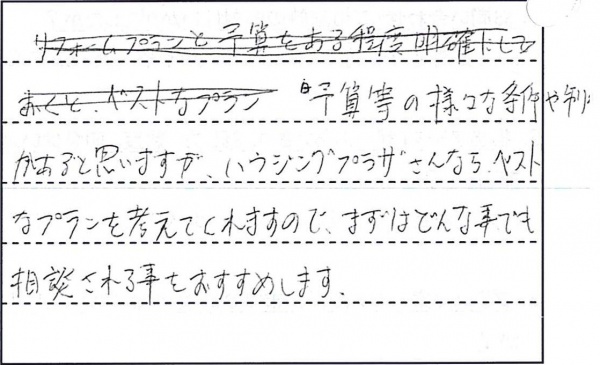 リフォームプランと予算をある程度明確にして
おくと、ベストなプラン 予算等の様々な条件や制
があると思いますが、ハウジングプラザさんなら、ベスト
なプランを考えてくれますので、まずはどんな事でも
相談される事をおすすめします。